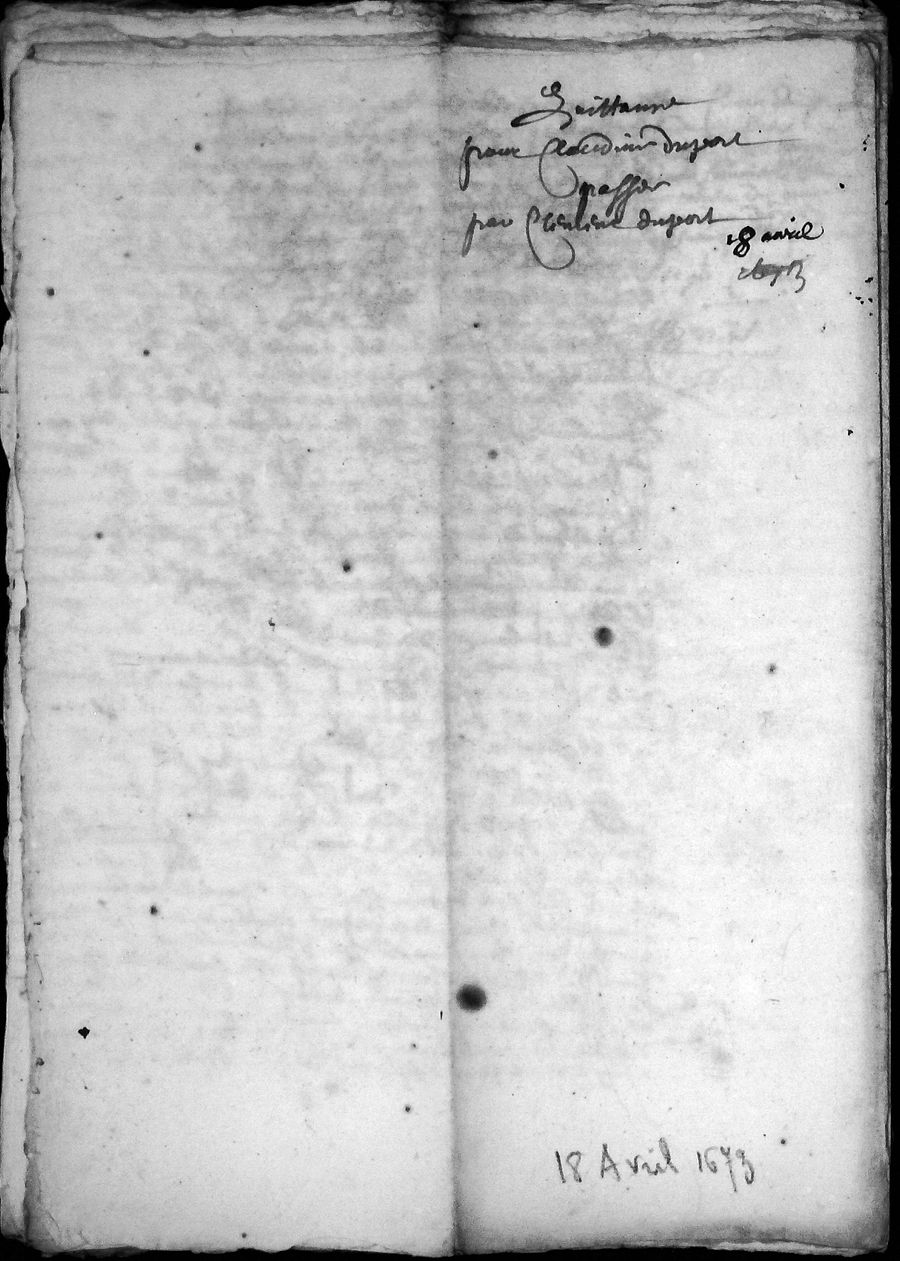 Quittance
pour Claudine duport
passee
par Clemene duport
18 avril
1673
18 Avril 1673